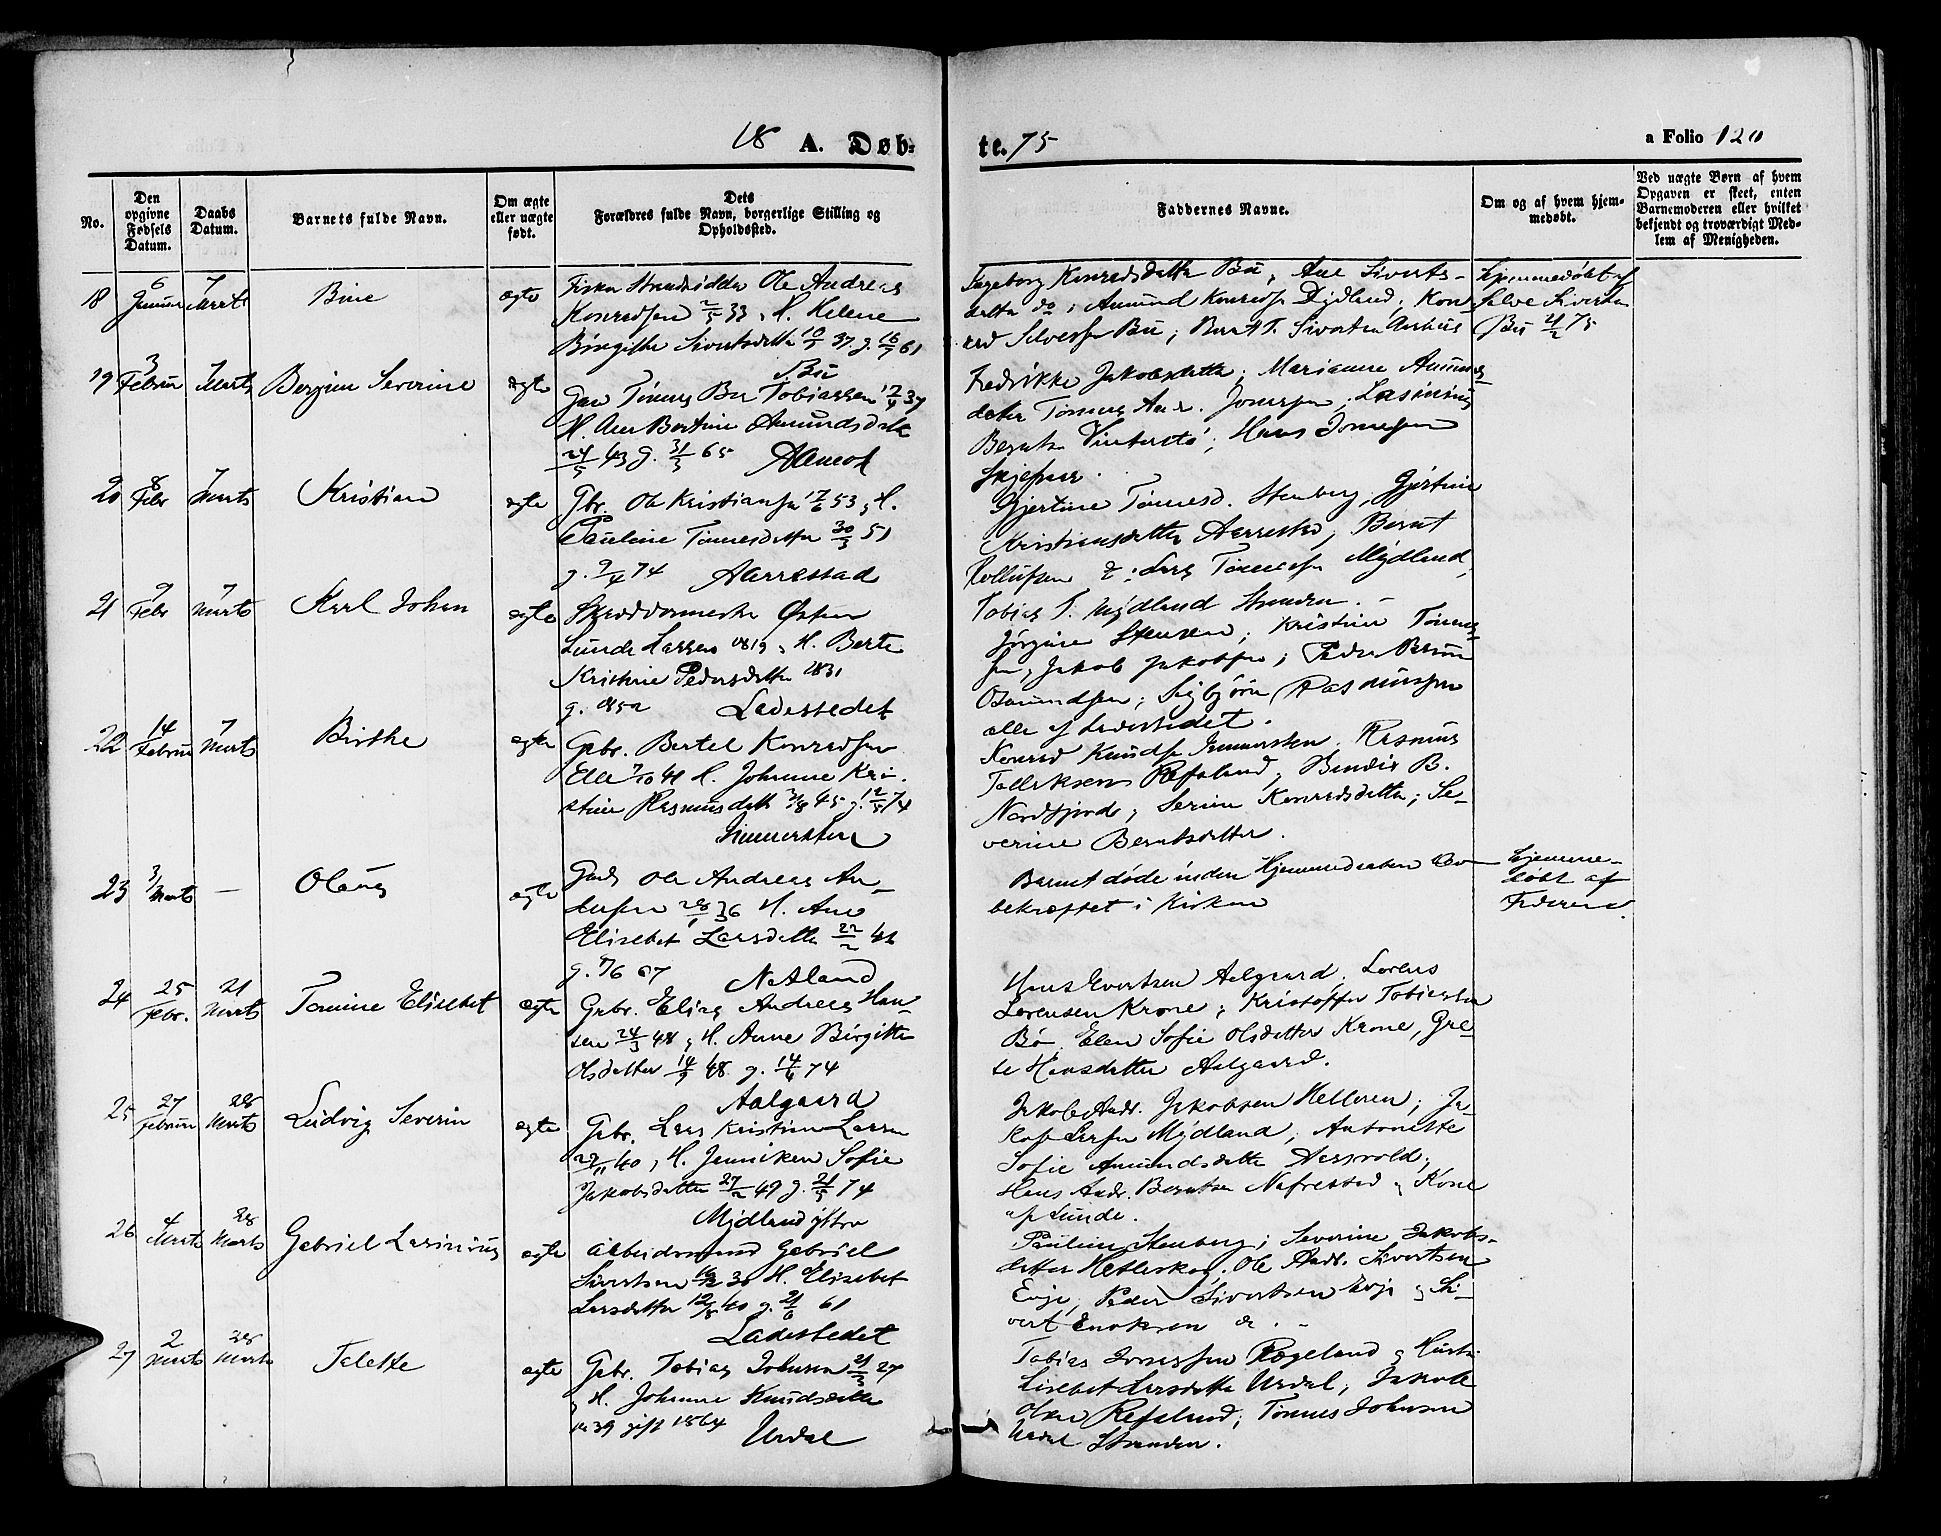 18 A. Døb-
te. 75
a Folio 120
No.
Den opgivne Fødsels Datum.
Daabs Datum.
Barnets fulde Navn.
Om ægte eller uægte født.
Dets Forældres fulde Navn, borgerlige Stilling og Opholdssted.
Faddernes Navne.
Om og af hvem hjem-
medøbt.
Ved uægte Børn af hvem
Opgaven er skeet, enten
Barnemoderen eller hvilket
bekjendt og troværdigt Med-
lem af Menigheden.
18 6 7 Marts
ægte
Ole Andreas
Konredsen 2/5 33, H. Helene
Birgitte Sivertsdatter 10/7 37. g. 16/7 61
Bu
Ingeborg Konredsdatter Bu, Ane Siverts-
datter do; Amund Konreds Dydland, Kon-
red Selvesen Bu; Bernt T. Sivertsen
hjemmedøbt af
Selve Siverts
Bu 75
19 3 Februar 7 Marts Bergine Severine ægte
Tønnes Ber Tobiassen 37
H. Ane Bertine Amundsdatter
24/5 43 g. 31/3 65
Fredrikke Jakobsdatter; Marianne Amunds-
datter Tønnes Andr. Jonassen; Lasinius
Berntsen; Hans Jonassen
20 8 Febr 7 Marts Kristian ægte
Gbr. Ole Kristiansen 53, H.
Pauline Tønnesdatter 30/3 51
g. 9/4 74 Aarrestad
Gjertine Tønnesd. Stenberg, Gjertine
Kristiansdatter Aarrestad, Bernt
Lars Tønnesen Mydland,
Tobias T. Mydland Stranden.
21 9 Febr 7 Marts Karl Johan ægte
Skreddermester Østen
Lunde Larsen 1819, H. Berte
Kristine Pedersdatter 1831
g. 1852 Ladestedet
Jørgine Stensen; Kristian Tønnes-
sen, Jakob Jakobsen; Peder
Osmundsen; Sigbjørn Rasmussen
alle af Ladestedet.
22 14 Februar 7 Marts Birthe ægte
Grbr. Bertel Konredsen
41 H. Johanne Kri-
stine Rasmusdatter 45 g. 12/5 74
Konred Knudsen Rasmus
Tollaksen Refsland; Bendix B.
Nordfjord; Serine Konredsdatter; Se-
verine Berntsdatter.
23 3/ Marts — Olaus ægte
Ole Andreas An-
dersen 28/1 36 H. Ane
Elisebet Larsdatter 22/2 42
g. 7/6 67 Netland
Barnet døde inden Hjemmedaaben blev
bekræftet i Kirken
hjemme-
døbt af
Faderen.
24 25 Febr. 21 Marts Tomine Elisebet ægte
Grbr. Elias Andreas Han-
sen 24/3 48, H. Anne Birgitte
Olsdatter 14/9 48. g. 14/4 74
Aalgaard
Hans Evertsen Aalgaard, Lorens
Lorensen Krone; Kristoffer Tobiassen
Bø. Elen Sofie Olsdatter Krone, Gre-
te Hansdatter Aalgaard.
25 27 Februar 28 Marts Ludvig Severin ægte
Grbr. Lars Kristian Larsen
40, H. Jenniken Sofie
Jakobsdatter 27/2 49 g. 21/5 74
Mydland
Jakob Andr. Jakobsen Helleren; Ja-
kob Larsen Mydland; Antonette
Sofie Amundsdatter
Hans Andr. Berntsen Nefrestad og Kone
af Lunde.
26 4 Marts 28 Marts Gabriel Lasinius ægte
Arbeidsmand Gabriel
Sivertsen H. Elisebet
Larsdatter 40 g. 21/6 61
Ladestedet
Pauline Stenberg; Severine Jakobs-
datter Hetleskog, Ole Andr. Sivertsen
Evje, Peder Sivertsen Evje og Si-
vert Enoksen do. -
27 2 Marts 28 Marts Talette ægte
Grbr. Tobias Johnsen 21/3 27
H. Johanne Knudsdatter
1839 gift 1864 Urdal
Tobias Rægeland og Hustr.
Lisebet Larsdatter Urdal; Jakob
Olsen Refsland; Tønnes Johnsen
Urdal Stranden.